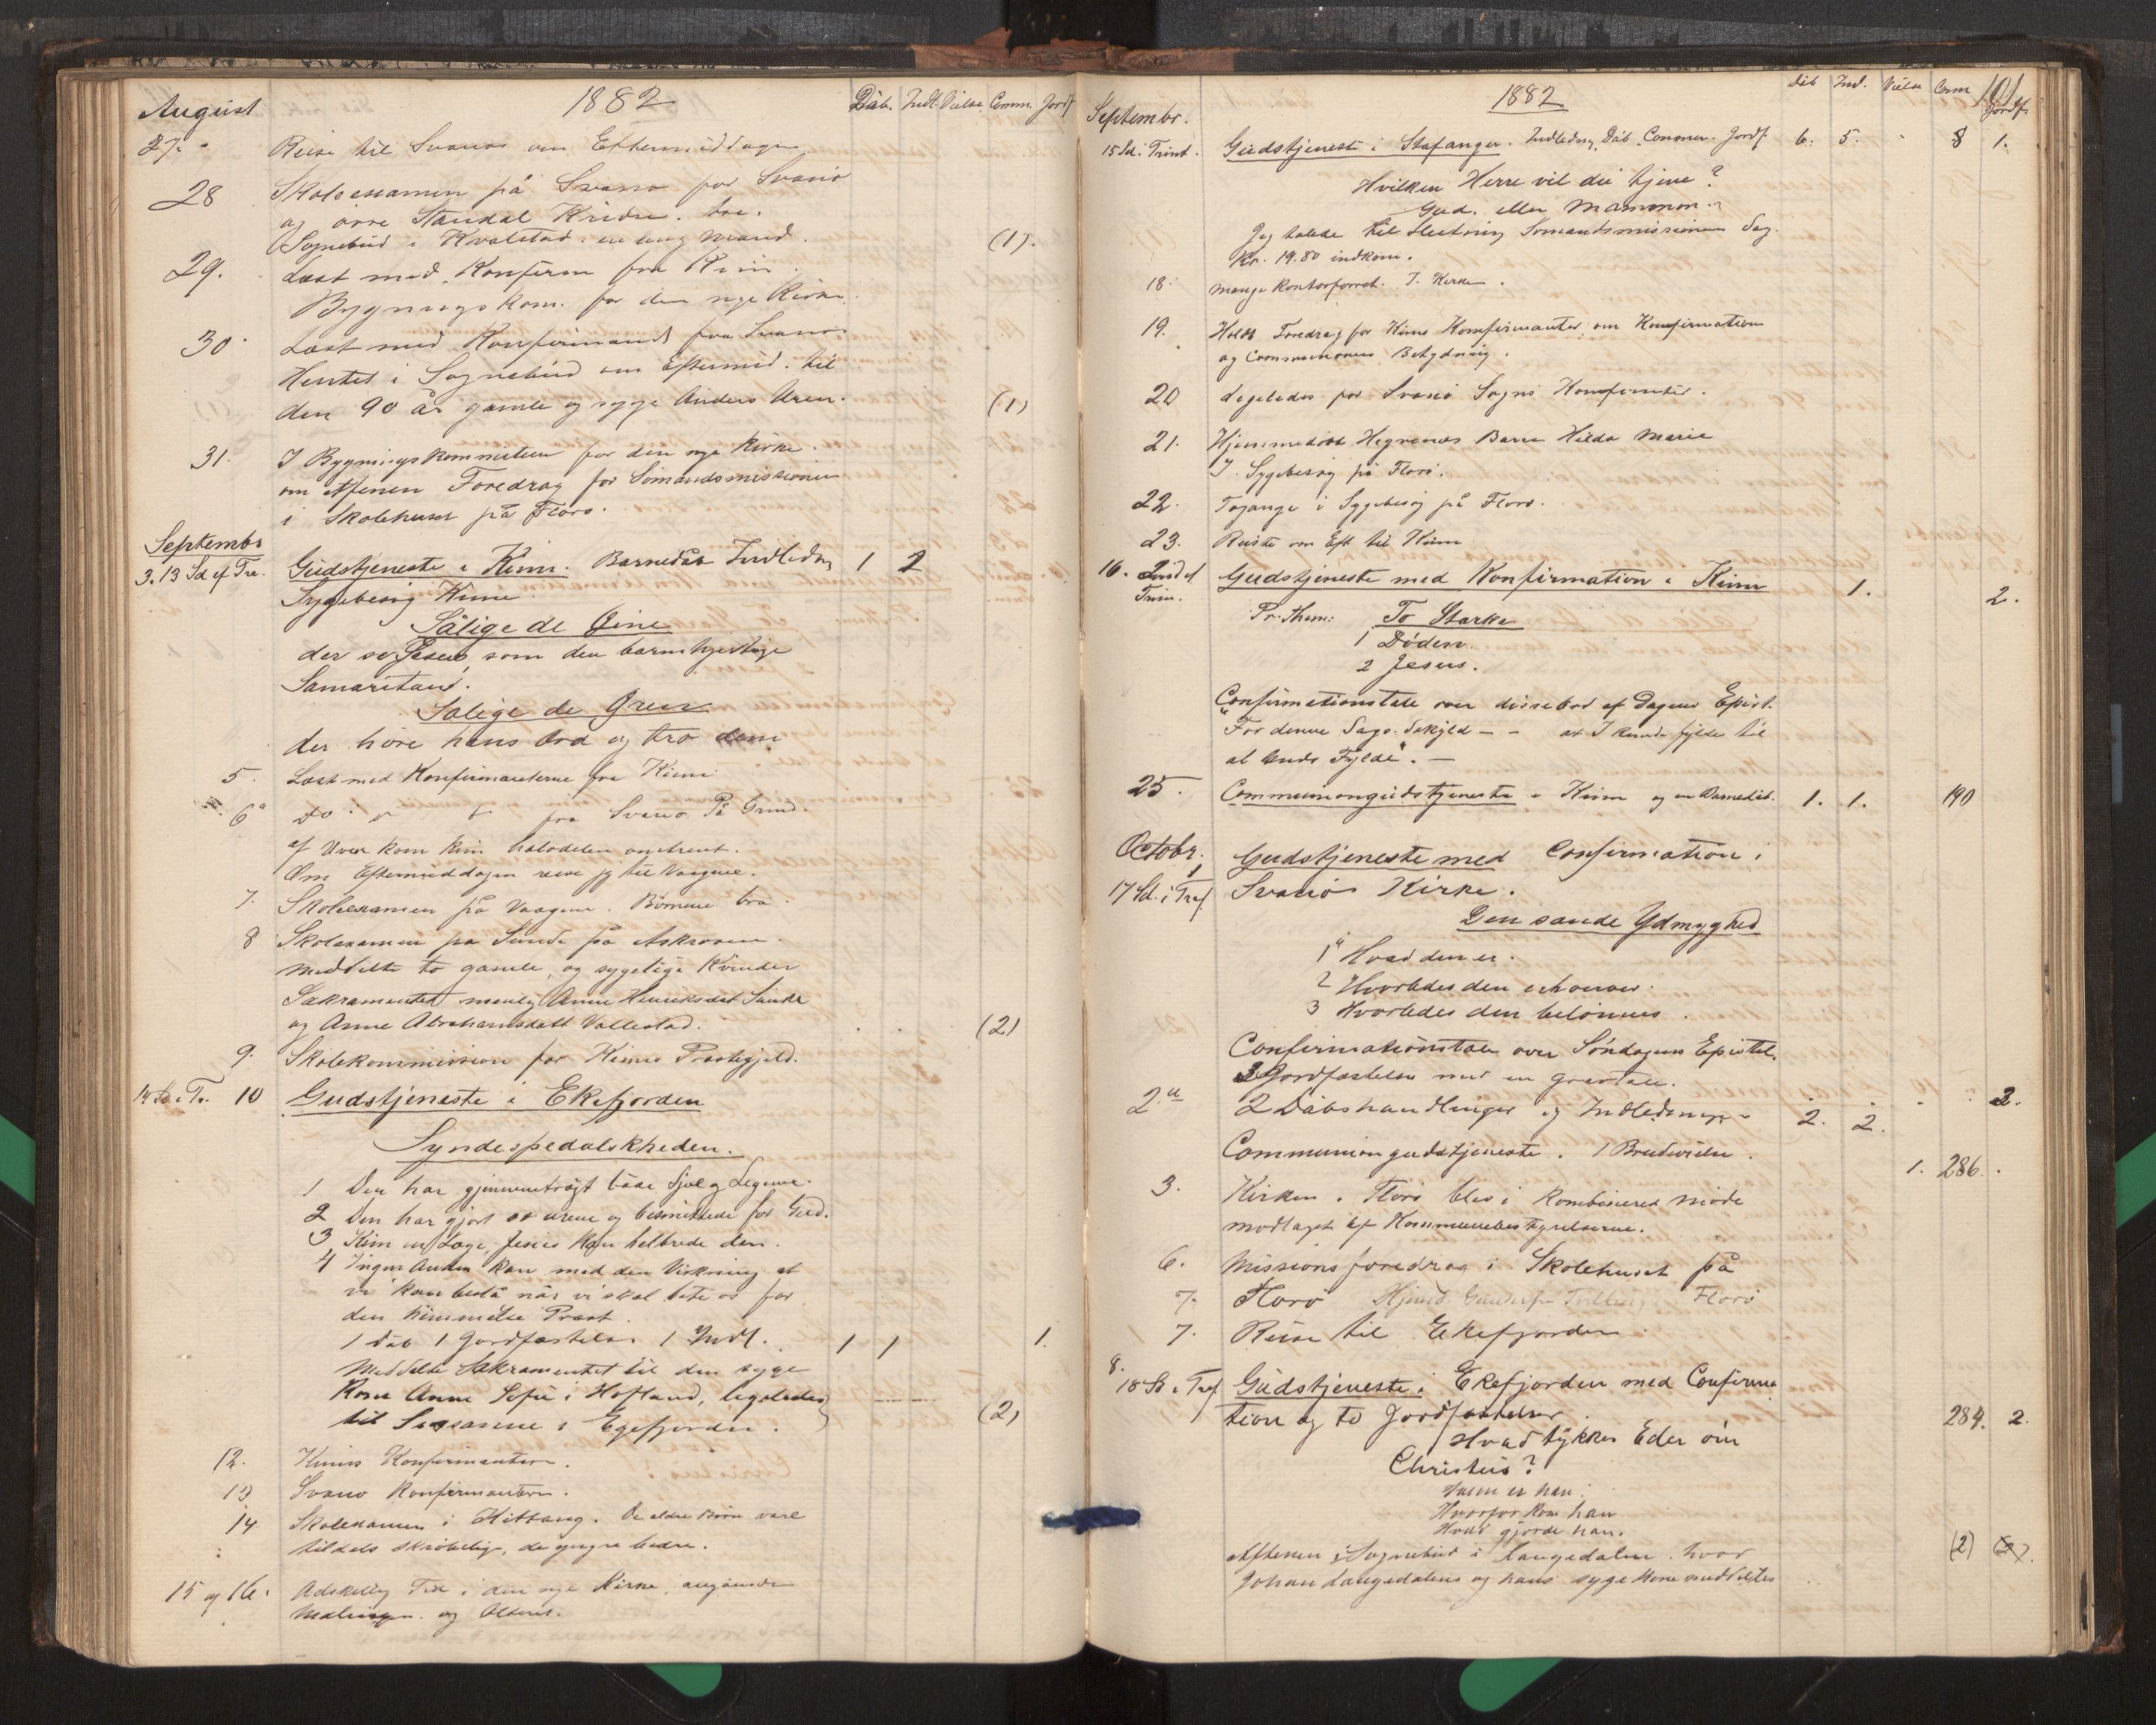 August 1882 Dåb. Indl. Vielse Comm. Jordf
27. Reise til Svanø om Eftermiddagen
28 Skoleexamen på Svanø for Svanø
og Standal Kredse. bra.
Sognebud i Kvalstad: en ung Mand. (1).
29. Læst med Konfirm fra Kinn.
Bygningskom. for den nye Kirke.
30 Læst med Konfirmand fra Svanø
Hentet i Sognebud om Eftermid. til
den 90 år gamle og syge Anders Aren. (1)
31. I Bygningskommiteen for den nye Kirke.
om Aftenen Foredrag for Sömandsmissionen
i Skolehuset på Florö.
Septembr
3. 13 Sd ef Tre. Gudstjeneste i Kinn. Barnedåb Indledn 1 2
Sygebesög Kinn
Sålige de Øine
der se Jesus, som den barmhjertige
Samaritan.
Salige de Øren
der höre hans Ord og tro dem
5. Læst med Konfirmanterne fra Kinn
6 Do fra Svanø På Grund.
af Uveir kom kun halvdelen omtrent.
Om Eftermiddagen reise jeg til Vaagene.
7. Skoleexamen på Vaagene. Börnene bra.
8 Skolexamen på Sunde på Askroven.
meddelte to gamle, og sygelige Kvinder
Sakramentet nemlig Anne Henriksdat Sunde
og Anne Abrahamsdatt Vallestad. (2)
9. Skolekommission for Kinns Præstegjeld.
14 Sd i Tr. 10 Gudstjeneste i Ekefjorden
Syndespedalskheden.
1 Den har gjennemtrægt både Sjel og Legeme.
2 Den har gjort os urene og besmittede for Gud.
3 Kun en Læge, Jesus kan helbrede den.
4 Ingen Anden kan med den Virkning at
vi kan bestå når vi skal bete os for
den himmelse Præst.
1 Dåb 1 Jordfæstelse 1 Indl. 1 1 1.
Meddelte Sakramentet til den syge
Kone Anne Sofie i Hofland, ligeledes
til Susanne i Egefjorden. (2)
12. Kinns Konfirmanter.
13 Svanø Konfirmanter.
14 Skolexamen i Hittang. De eldre Börn vare
tildels skröbelige, de yngre bedre.
15 og 16. Adskillig Tid i den nye Kirke, angående
Malingen og Alteret.
Septembr. 1882 Dåb Ind. Vielse Comm Jordf. 101
15 Sd. i Trint. Gudstjeneste i Stafanger. Indledn, Dåb. Commun. Jordf. 6. 5. 8 1.
Hvilken Herre vil du tjene?
Gud. eller Mammon.
Jeg talede til Slutning Sömandsmissionens Sag.
Kr. 19.80 indkom.
18. mange Kontorforret. I. Kirken.
19. Holdt Foredrag for Kinns Konfirmanter om Konfirmation
og Communionens Betydning.
20 Ligeledes for Svanö Sogns Konfirmanter.
21. Hjemmedöbt Hegrenæs Barn Hilda Marie
I Sygebesög på Florö.
22. Togange i Sygebesög på Florö.
23. Reiste om Eft til Kinn
16. Sönd ef Trin. Gudstjeneste med Konfirmation i Kinn 1. 2.
Pr. Them: To Stærke
1 Döden.
2 Jesus.
Confirmationstale over disse Ord af Dagens Epist.
"For denne Sags Skyld - - at I kunde fyldes til
al Guds Fylde". -
25. Communiongudstjeneste i Kinn og en Barnedåb. 1. 1. 190
Octobr. 1 Gudstjeneste med Confirmation i
17 Sd. i Tref Svanö Kirke.
Den sande Ydmyghed
1 Hvad den er.
2 Hvorledes den erhverves.
3 Hvorledes den belönnes.
Confirmationstale over Söndagens Epistel.
3 Jordfæstelse med en gravtale.
2 2 Dåbshandlinger og Indledninger 2. 2. 2.
Communiongudstjeneste. 1 Brudevielse. 1. 286.
3. Kirken i Florö blev i kombineret möde
modtaget af Kommunebestyrelserne.
6. Missionsforedrag i Skolehuset på
7. Florö Florö
7. Reise til Ekefjorden
8. 18 Sd i Tref Gudstjeneste i Ekefjorden med Confirma
tion og to Jordfæstelser. 284. 2.
Hvad tykkes Eder om
Christus?
Hvem er han.
Hvorfor kom han
Hvad gjorde han.
Aftenen i Sognebud i Langedalen hvor (2)
Johan Langedalens og hans syge Kone meddeltes